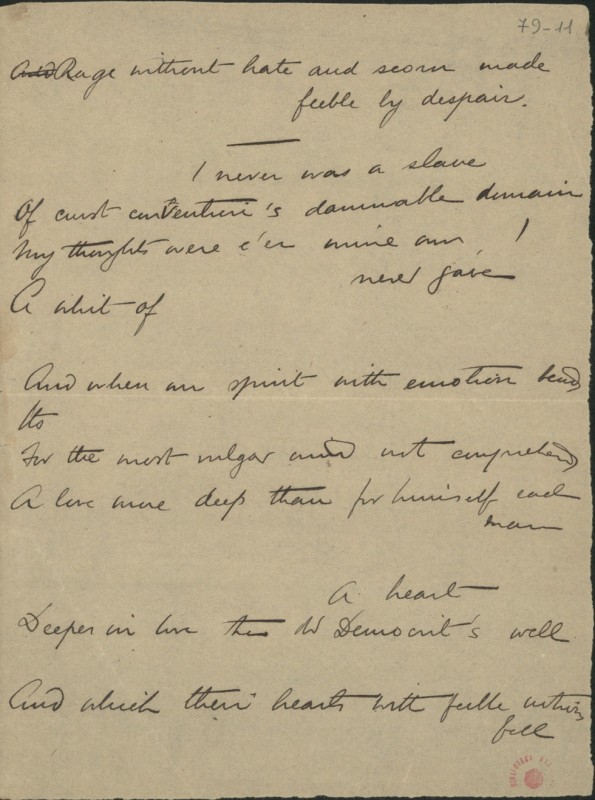 79-11
And Rage without hate and scorn made
feeble by despair.
I never was a slave
Of curst convention's damnable domain
My thoughts were e'er mine own, I
never gave
A whit of
And when our spirit with emotion bends
Its
For the most vulgar mind not comprehends
A love more deep than for himself each
man
A heart
Deeper in love than old Democrit's well
And which their hearts with feeble
fill